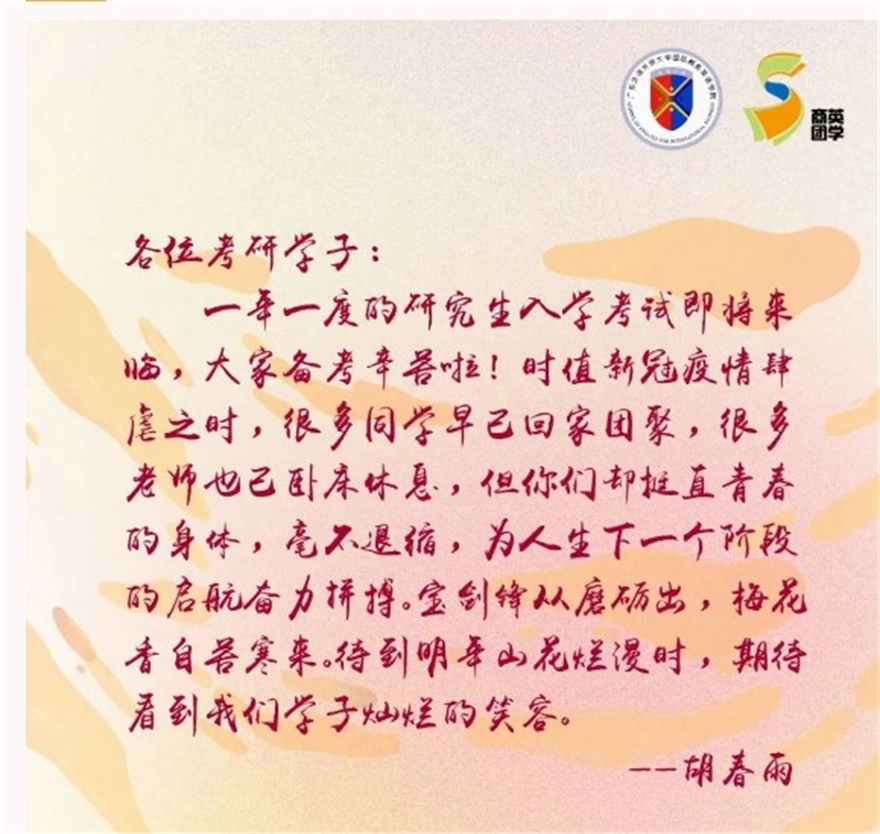 广东外语外贸大学国际商务英语学院
SCHOOL OF ENGLISH FOR INTERNATIONAL BUSINESS
商英
团学
各位考研学子：
一年一度的研究生入学考试即将来
临，大家备考辛苦啦！时值新冠疫情肆
虐之时，很多同学早已回家团聚，很多
老师也已卧床休息，但你们却挺直青春
的身体，毫不退缩，为人生下一个阶段
的启航奋力拼搏。宝剑锋从磨砺出，梅花
香自苦寒来。待到明年山花烂漫时，期待
看到我们学子灿烂的笑容。
--胡春雨